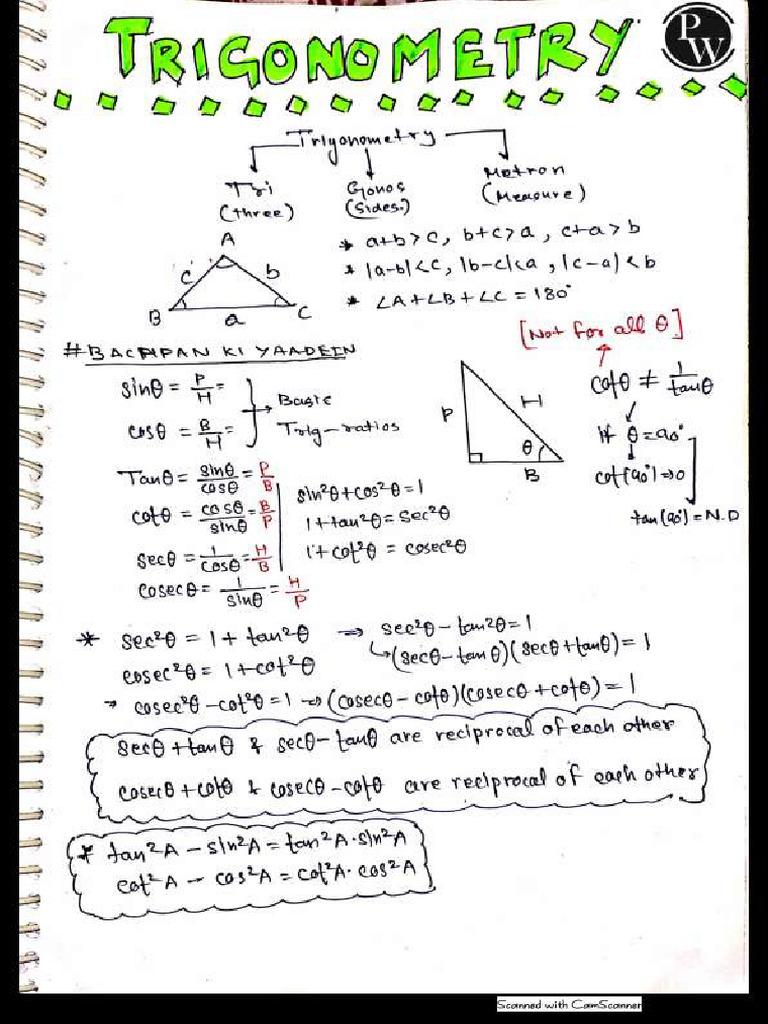 TRIGONOMETRY
PW
Trigonometry
Tri Gonos Metron
(three) (Sides.) (Measure)
A
c b
B a C
* a+b>c, b+c>a, c+a>b
* |a-b|<c, |b-c|<a, |c-a|<b
* ∠A+∠B+∠C=180°
#BACHPAN KI YAADEIN
[Not for all θ]
sinθ = P/H =
cosθ = B/H =
Basic
Trig-ratios
P H
θ
B
cotθ ≠ 1/tanθ
If θ=90°
cot(90°)⇒0
tan(90°)=N.D
Tanθ = sinθ/cosθ = P/B
cotθ = cosθ/sinθ = B/P
secθ = 1/cosθ = H/B
cosecθ = 1/sinθ = H/P
sin²θ+cos²θ=1
1+tan²θ=sec²θ
1+cot²θ = cosec²θ
* sec²θ = 1+tan²θ ⇒ sec²θ-tan²θ=1
↳(secθ-tanθ)(secθ+tanθ)=1
cosec²θ = 1+cot²θ
→ cosec²θ-cot²θ=1 ⇒ (cosecθ-cotθ)(cosecθ+cotθ)=1
secθ+tanθ & secθ-tanθ are reciprocal of each other
cosecθ+cotθ & cosecθ-cotθ are reciprocal of each other
* tan²A - sin²A = tan²A·sin²A
cot²A - cos²A = cot²A·cos²A
Scanned with CamScanner